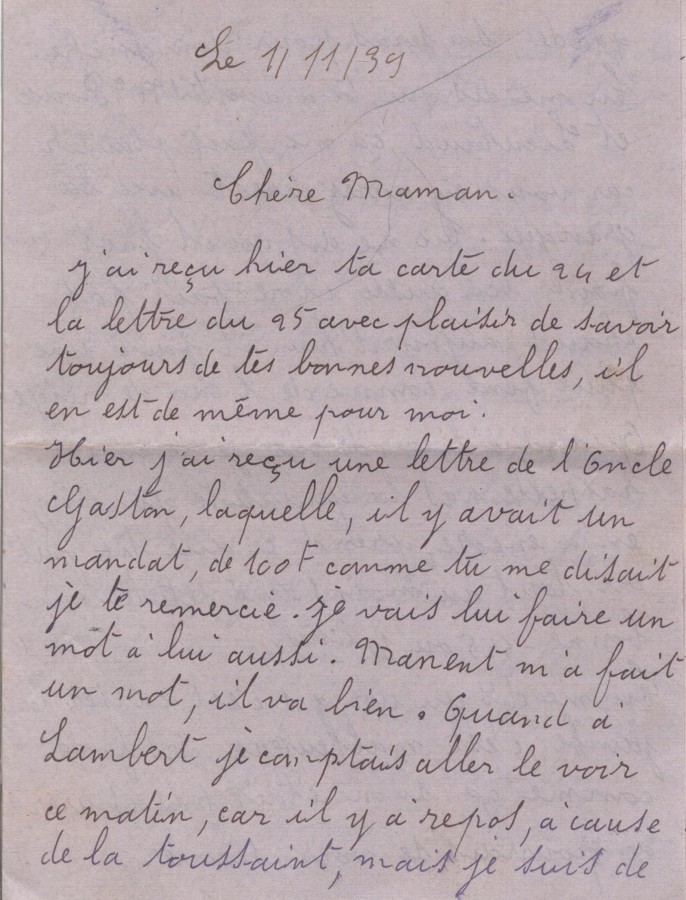 Le 1/11/39
Chère Maman.
j'ai reçu hier ta carte du 24 et
la lettre du 25 avec plaisir de savoir
toujours de tes bonnes nouvelles, il
en est de même pour moi.
Hier j'ai reçu une lettre de l'Oncle
Gaston, laquelle, il y avait un
mandat, de 100F comme tu me disait
je te remercie. Je vais lui faire un
mot à lui aussi. Manent m'a fait
un mot, il va bien. Quand à
Lambert je comptais aller le voir
ce matin, car il y a repos, à cause
de la toussaint, mais je suis de